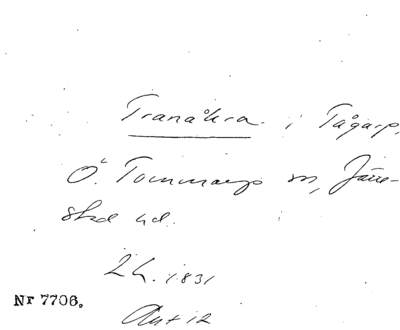 Tranåkra i Tågarp,
Ö. Tommarps sn, Järre-
stad hd.
2 h. 1831
Nr 7706.
Akt 12